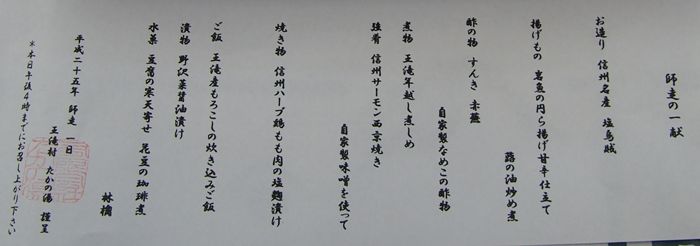 師走の一献
お造り 信州名産 塩烏賊
揚げもの 岩魚の円ら揚げ甘辛仕立て
蕗の油炒め煮
酢の物 すんき 赤蕪
自家製なめこの酢物
煮物 王滝年越し煮しめ
強肴 信州サーモン西京焼き
自家製味噌を使って
焼き物 信州ハーブ鶏もも肉の塩麹漬け
ご飯 王滝産もろこしの炊き込みご飯
漬物 野沢菜醤油漬け
水菓 豆腐の寒天寄せ 花豆の珈琲煮
林檎
平成二十五年 師走 一日
王滝村 たかの湯 謹呈
*本日午後4時までにお召し上がり下さい